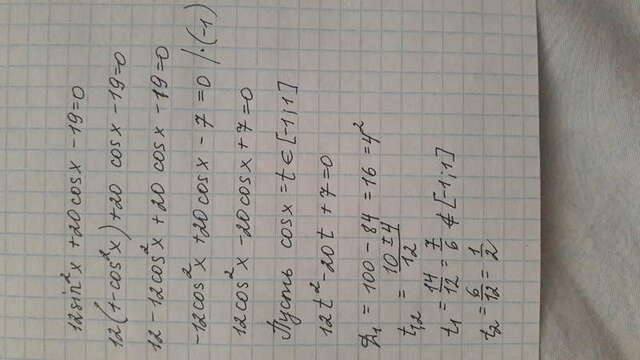 12sin²x + 20cosx - 19 = 0
12(1 - cos²x) + 20 cosx - 19 = 0
12 - 12cos²x + 20 cosx - 19 = 0
-12cos²x + 20cosx - 7 = 0 /·(-1)
12cos²x - 20cosx + 7 = 0
Пусть cosx = t ∈ [-1; 1]
12t² - 20t + 7 = 0
D₁ = 100 - 84 = 16 = 4²
t₁,₂ = (10 ± 4)/12
t₁ = 14/12 = 7/6 ∉ [-1; 1]
t₂ = 6/12 = 1/2